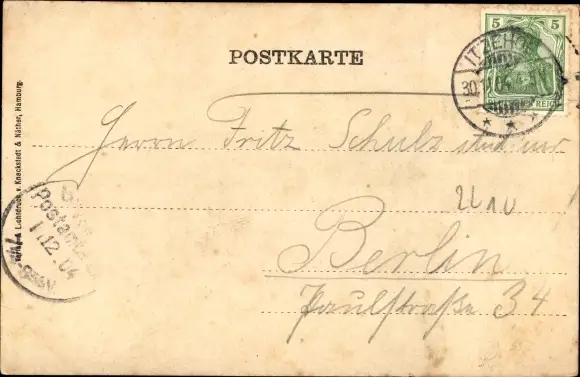 POSTKARTE
5 5
REICH
ITZEHOE
30.11.04
Herrn Fritz Schulz
Berlin
Paulstraße 34
Postamt
1.12.04
Verlag & Lichtdruck v. Knackstedt & Näther, Hamburg.